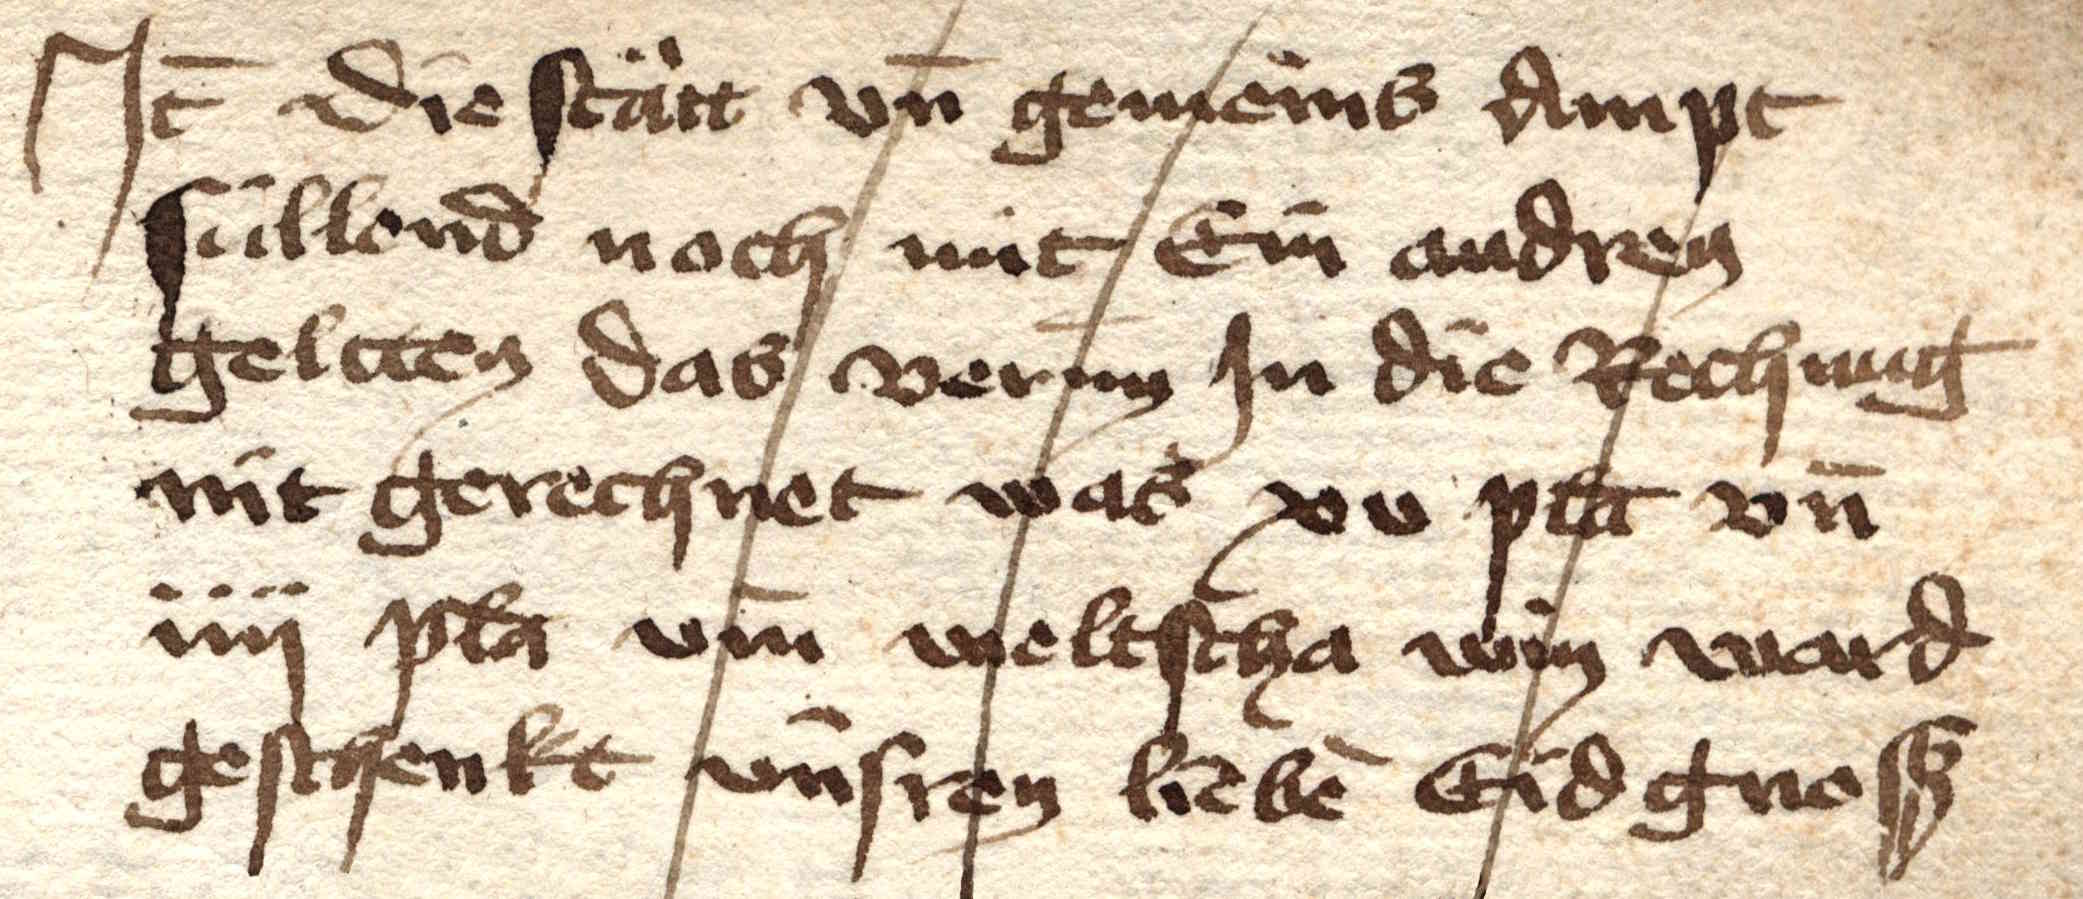 It̄ die stätt vn̄ gemeins ampt
süllend noch mit Ein andren
geltten das vern̄n In die Rechnung
nit gerechnet was xv plä vn̄
iiij plä vm̄ weltscha win ward
geschenkt vnsren liebē Eidgnoss